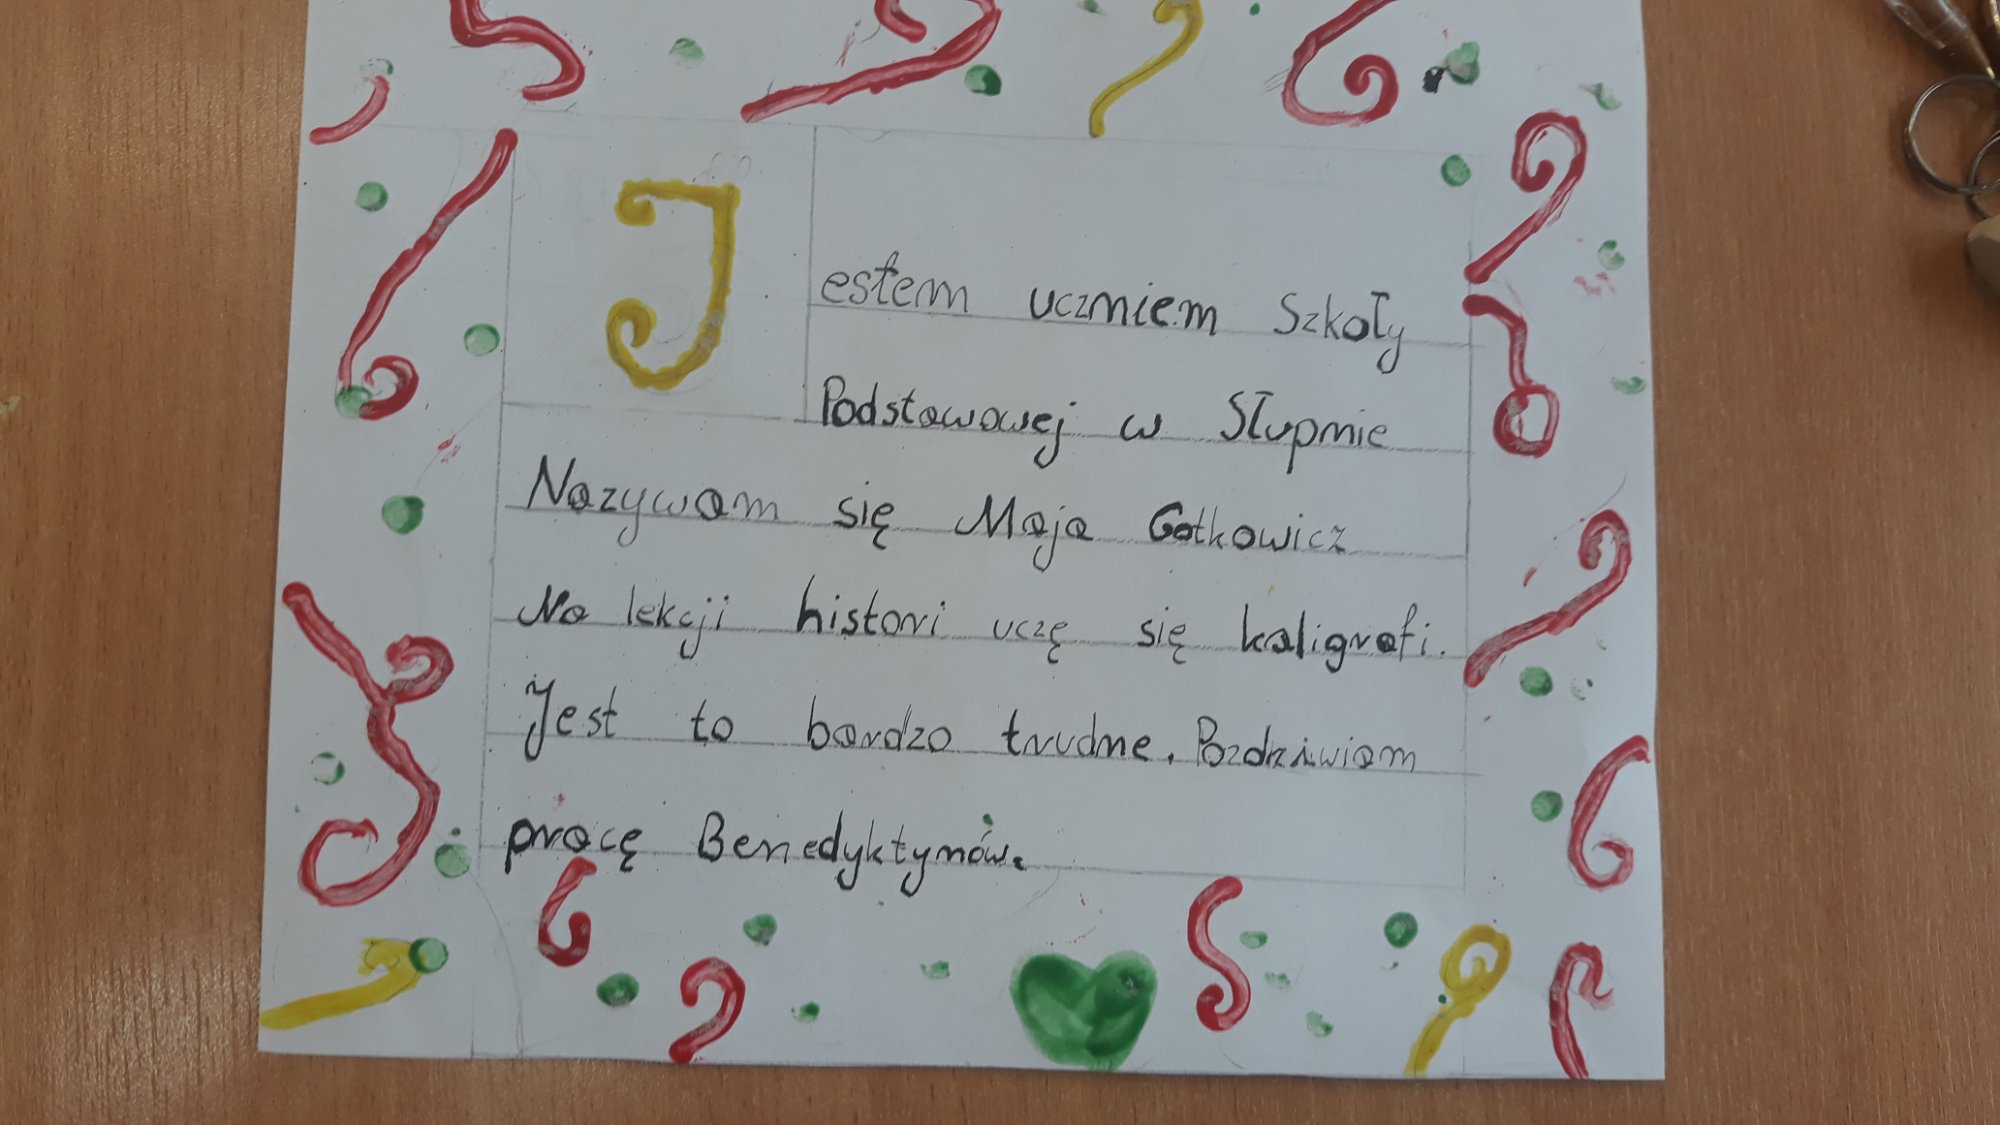 Jestem uczniem Szkoły
Podstawowej w Słupnie
Nazywam się Maja Gotkowicz
Na lekcji histori uczę się kaligrafi.
Jest to bardzo trudne. Pozdziwiam
pracę Benedyktynów.